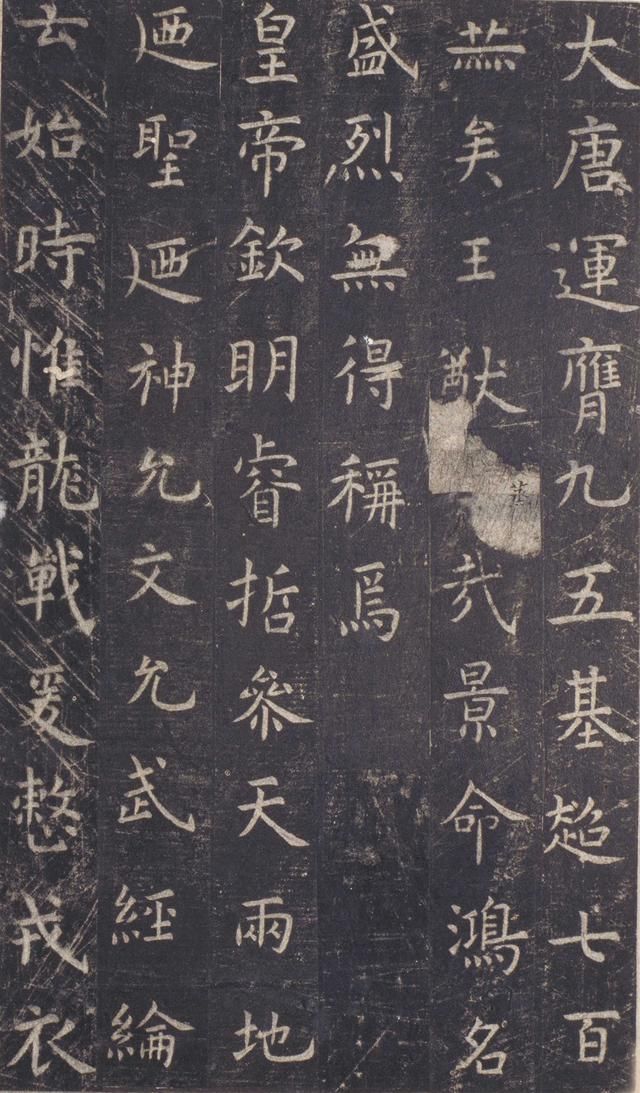 大唐運膺九五基超七百
赫矣王猷哉景命鴻名
盛烈無得稱焉
皇帝欽明睿哲參天兩地
廼聖廼神允文允武經綼
云始時惟龍戰爰整戎衣